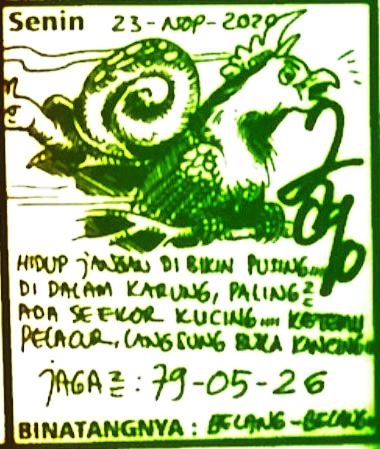 Senin 23-NOP-2020
HIDUP JANGAN DI BIKIN PUSING....
DI DALAM KARUNG, PALING 2
ADA SEEKOR KUCING.... KETEMU
PELACUR, LANGSUNG BUKA KANCING
JAGA 2 : 79-05-26
BINATANGNYA : BELANG-BELANG